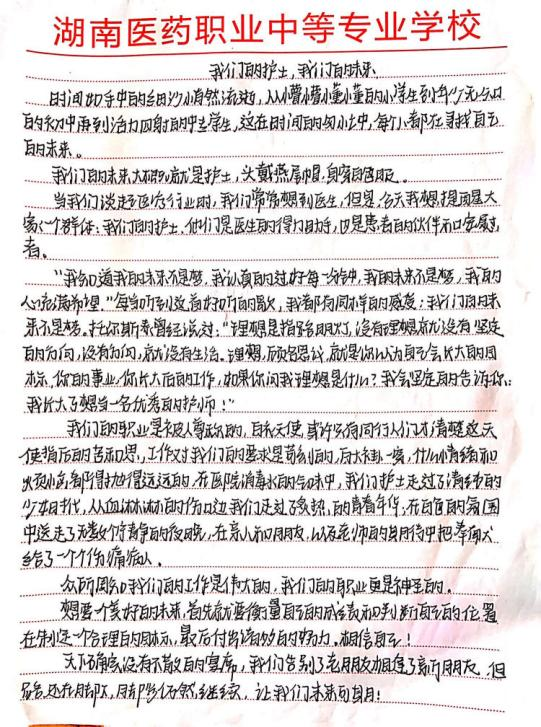 湖南医药职业中等专业学校
我们的护士,我们的未来
时间如手中的细沙悄然流逝,从懵懵懂懂的小学生到年少无知
的初中再到活力四射的中专学生,这在时间的匆匆中,每个都在寻找自己
的未来。
我们的未来大概就是护士,头戴燕尾帽,身穿白色服。
当我们谈起医疗行业时,我们常常想到医生,但是,今天我想提到是大
家一个群体:我们的护士,他们是医生的得力助手,也是患者的伙伴和守护
者。
"我知道我的未来不是梦,我认真的过好每一分钟,我的未来不是梦,我的
心充满希望。"每当听到这首好听的歌,我都有同样的感受:我们的未
来不是梦。托尔斯泰曾经说过:"理想是指路明灯,没有理想就没有坚定
的方向,没有方向,就没有生活。理想,顾名思议,就是你认为自己会长大的目
标,你的事业,你长大后的工作,如果你问我理想是什么?我会坚定的告诉你:
我长大了想当一名优秀的护师!"
我们的职业是被人尊敬的,白衣天使,或许只有同行人们才清楚这天
使背后的苦和累,工作对我们的要求是苛刻的,
火花小名都得抛得远远的,在医院消毒水的气味中,我们护士走过了清纯的
少女时代,从血淋淋的伤口边我们走过了 的青春年华,在白色的氛围
中送走了无数个寂静的夜晚,在亲人和朋友,以及老师的期待中把奉献
给了一个个伤痛病人。
众所周知我们的工作是伟大的,我们的职业更是神圣的。
想要一个美好的未来,首先就要衡量自己的成绩表和判断自己的位置
在制定一个合理的目标,最后付出诸多的努力。相信自己!
天下确实没有不散的宴席,我们告别了老朋友相逢了新朋友,但
路还在脚下,同样仍然继续,让我们未来可期!